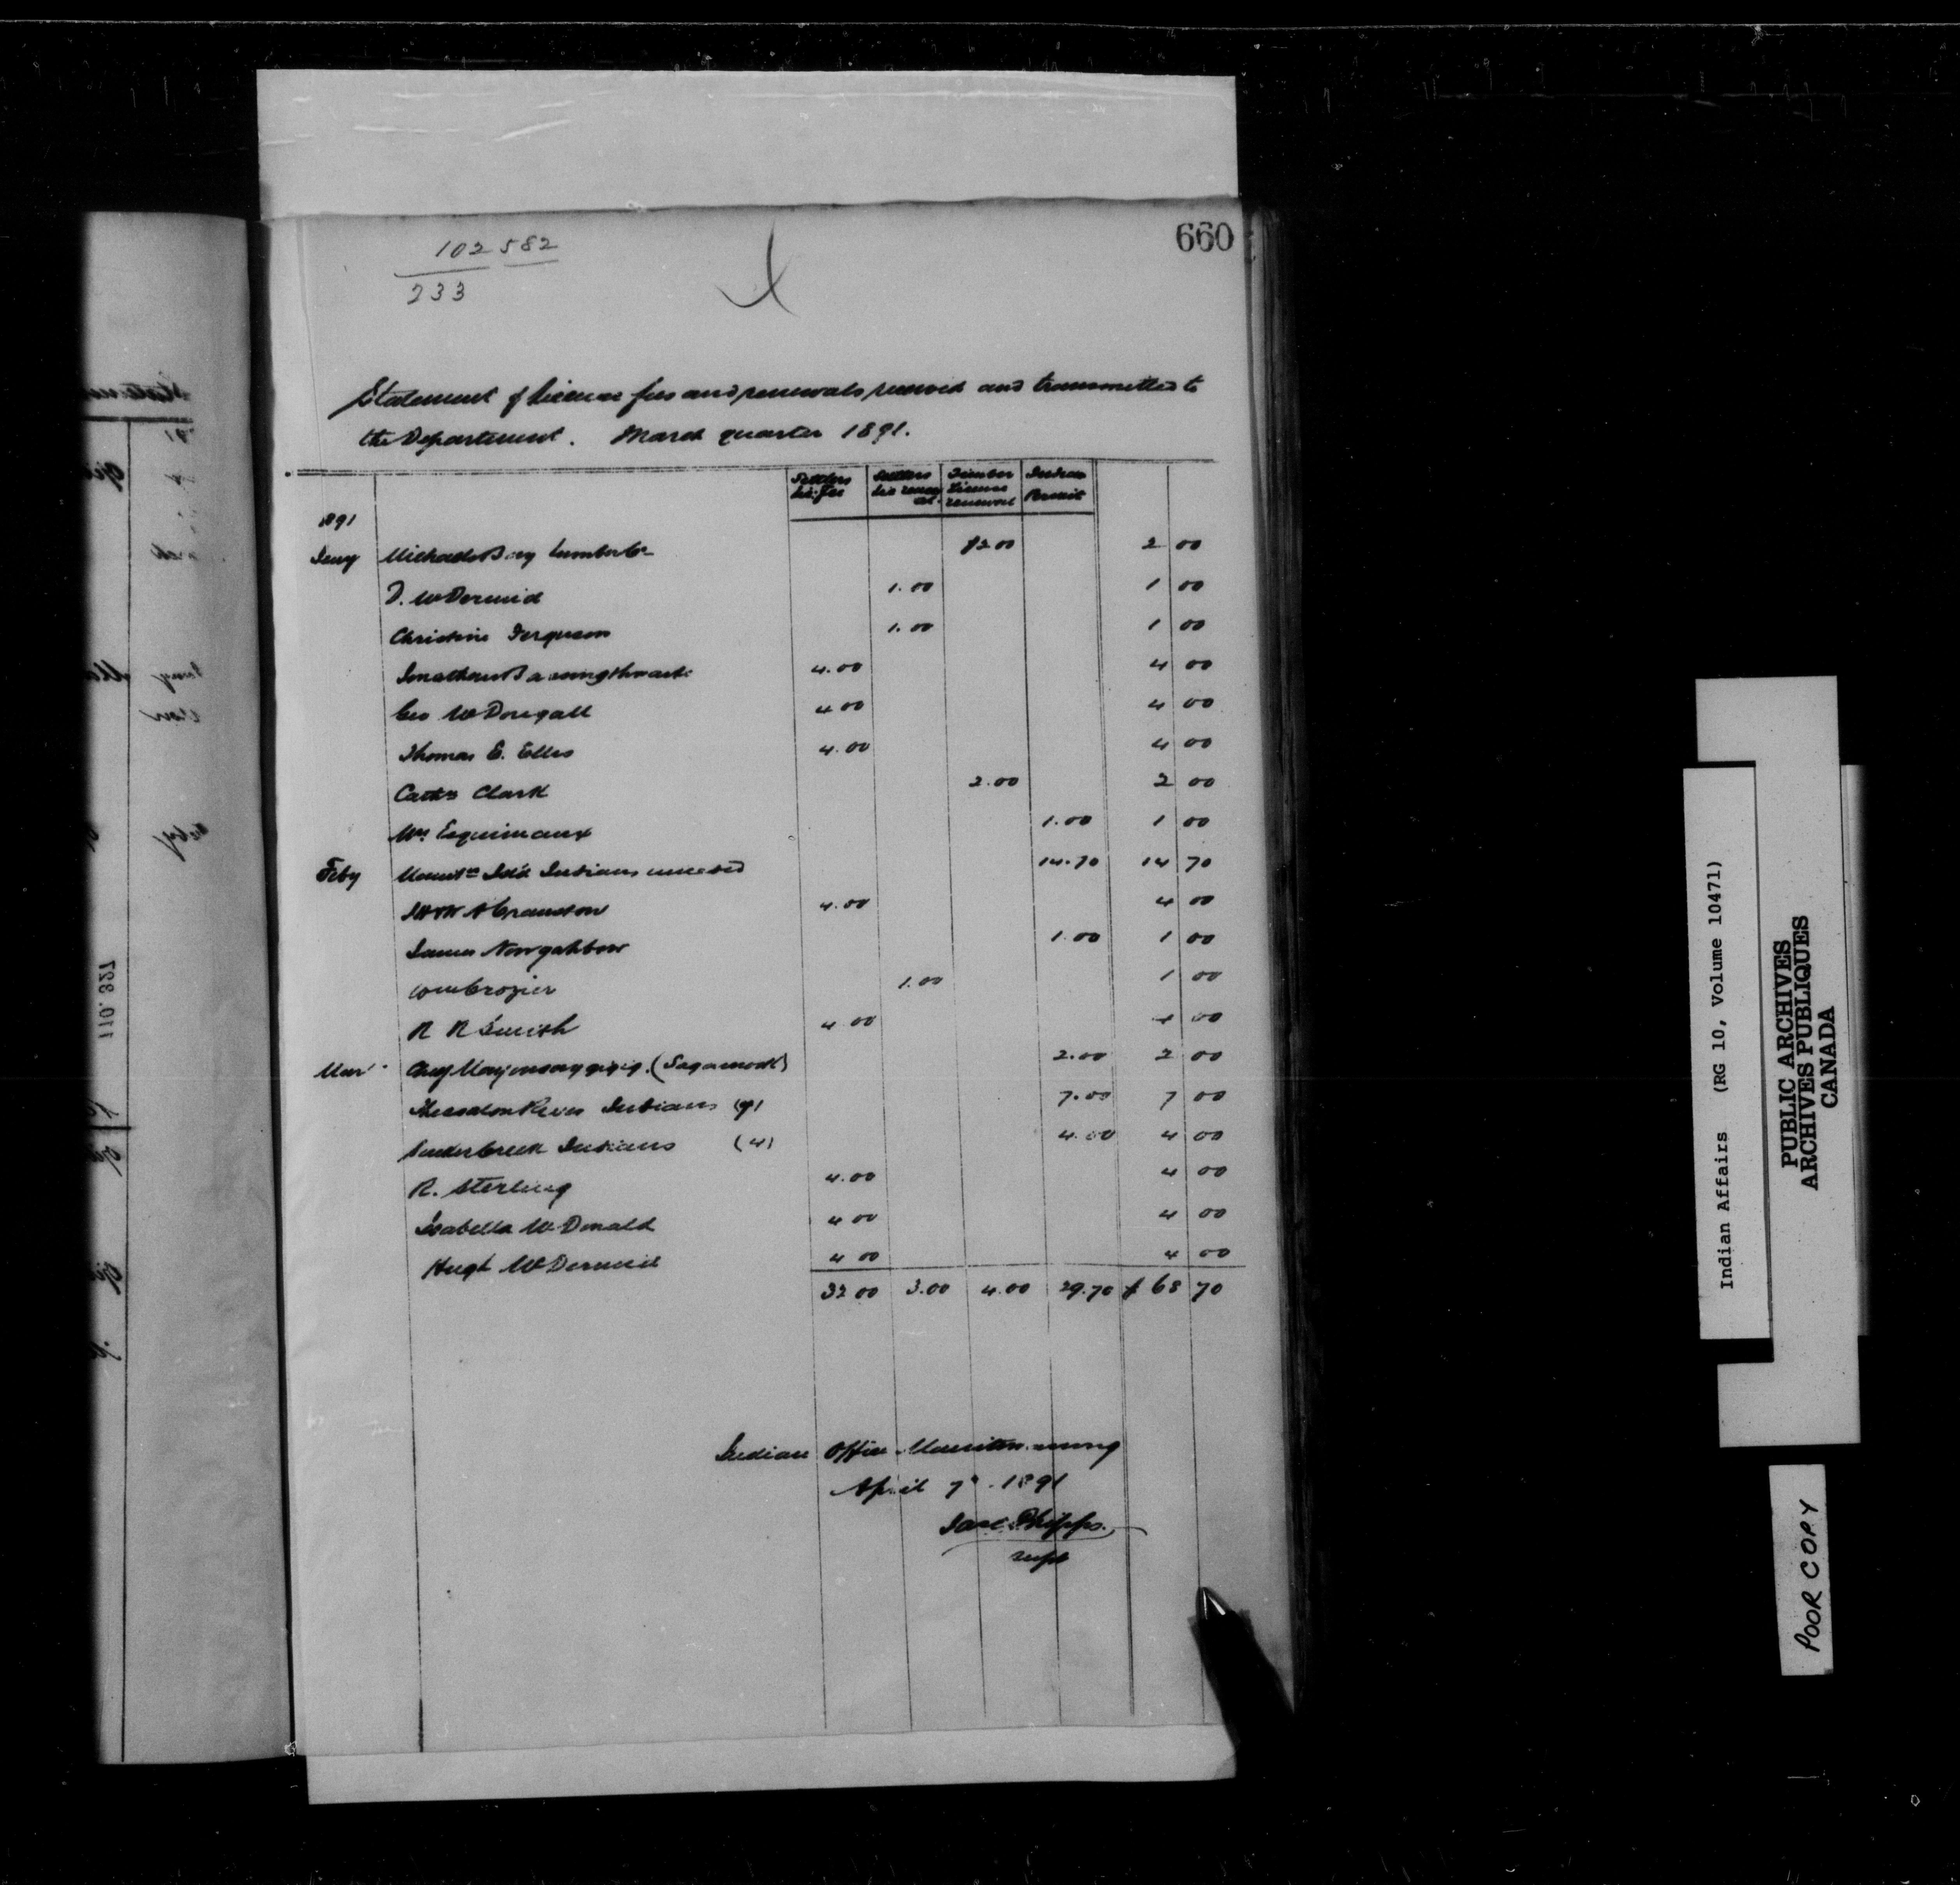 660
102582
233
Statement of License fees and renewals received and transmitted to
the Department. March quarter 1891.
Settlers Lic. fee | Settlers Lic renewal | Timber License renewal | Indian Permit
1891
Jany Michaels Bay Lumber Co 
$2.00 2 00
D. McDermid 1.00 1 00
Christine Ferguson 1.00 1 00
Jonathan 4.00 4 00
Geo McDougall 4 00 4 00
Thomas E. Ellis 4.00 4 00
Clark 2.00 2 00
Wm Esquimaux 1.00 1 00
Feby Indians 14.70 14 70
4.00 4 00
James Nowgahbow 1.00 1 00
Wm Crozier 1.00 1 00
R R Smith 4 00 4 00
Mar (Sagamook) 2.00 2 00
River Indians (7) 7.00 7 00
Indians (4) 4.00 4 00
R. Sterling 4.00 4 00
Isabella McDonald 4 00 4 00
Hugh McDermid 4 00 4 00
32 00 3.00 4.00 29.70 $ 68 70
Indian Office Manitowaning
April 7th 1891
Jas C Phipps.
supt
110.327
Indian Affairs (RG 10, Volume 10471)
PUBLIC ARCHIVES
ARCHIVES PUBLIQUES
CANADA
POOR COPY